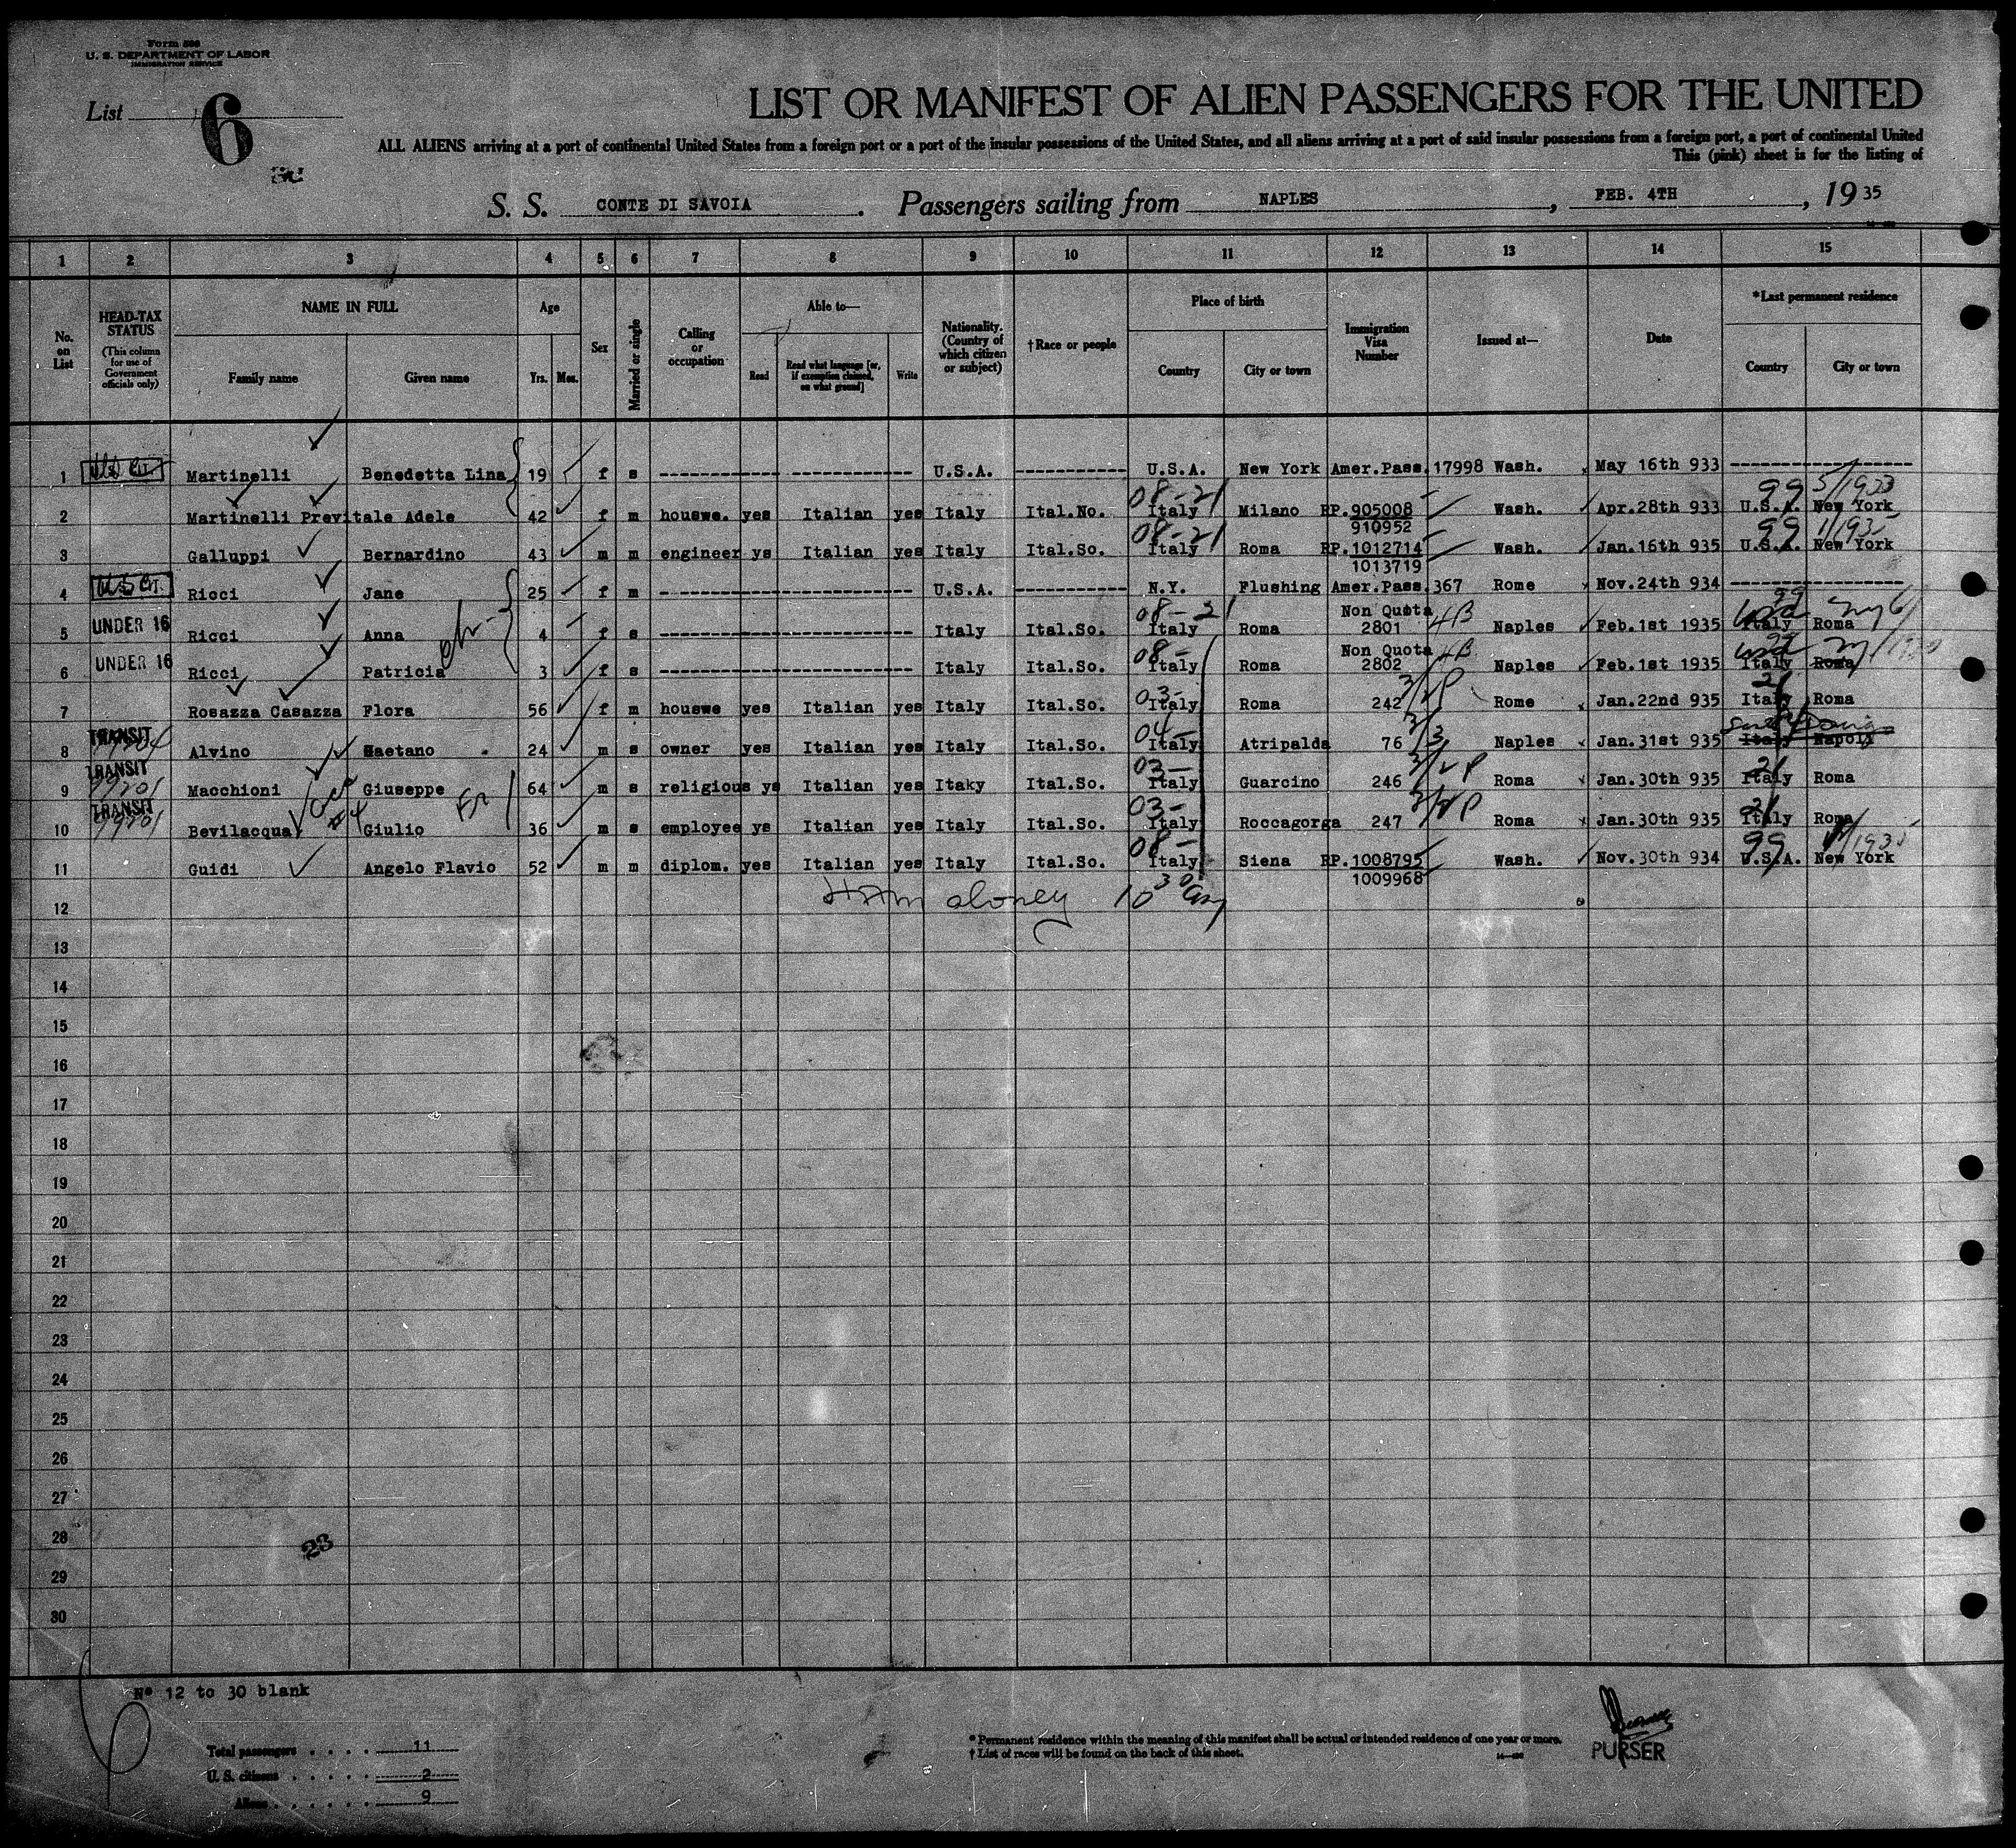 Form 500
U. S. DEPARTMENT OF LABOR
IMMIGRATION SERVICE
List 6
LIST OR MANIFEST OF ALIEN PASSENGERS FOR THE UNITED
ALL ALIENS arriving at a port of continental United States from a foreign port or a port of the insular possessions of the United States, and all aliens arriving at a port of said insular possessions from a foreign port, a port of continental United
This (pink) sheet is for the listing of
S. S. CONTE DI SAVOIA. Passengers sailing from NAPLES, FEB. 4TH, 1935
1 2 3 4 5 6 7 8 9 10 11 12 13 14 15
No. on List
HEAD-TAX STATUS (This column for use of Government officials only)
NAME IN FULL
Family name Given name
Age
Yrs. Mos.
Sex
Married or single
Calling or occupation
Able to—
Read Read what language [or, if exemption claimed, on what ground] Write
Nationality. (Country of which citizen or subject)
†Race or people
Place of birth
Country City or town
Immigration Visa Number
Issued at—
Date
*Last permanent residence
Country City or town
1 U.S. Cit. Martinelli Benedetta Lina 19 f s U.S.A. U.S.A. New York Amer.Pass.17998 Wash. May 16th 933
08-21 99 5/1933
2 Martinelli Previtale Adele 42 f m houswe. yes Italian yes Italy Ital.No. Italy Milano RP.905008 Wash. Apr.28th 933 U.S.A. New York
910952
08-21 99 1/1935
3 Galluppi Bernardino 43 m m engineer ys Italian yes Italy Ital.So. Italy Roma RP.1012714 Wash. Jan.16th 935 U.S.A. New York
1013719
4 U.S. Cit. Ricci Jane 25 f m U.S.A. N.Y. Flushing Amer.Pass.367 Rome Nov.24th 934
08-21 Non Quota
5 UNDER 16 Ricci Anna 4 f s Italy Ital.So. Italy Roma 2801 4B Naples Feb.1st 1935 Italy Roma
08- Non Quota
6 UNDER 16 Ricci Patricia 3 f s Italy Ital.So. Italy Roma 2802 4B Naples Feb.1st 1935 Italy Roma
03- 21
7 Rosazza Casazza Flora 56 f m houswe yes Italian yes Italy Ital.So. Italy Roma 242 3/2P Rome Jan.22nd 935 Italy Roma
TRANSIT 04-
8 Alvino Gaetano 24 m s owner yes Italian yes Italy Ital.So. Italy Atripalda 76 3/3 Naples Jan.31st 935 Italy Napoli
TRANSIT 03- 21
9 99201 Macchioni Giuseppe 64 m s religious ys Italian yes Itaky Ital.So. Italy Guarcino 246 3/2P Roma Jan.30th 935 Italy Roma
TRANSIT 03- 21
10 99201 Bevilacqua Giulio 36 m s employee ys Italian yes Italy Ital.So. Italy Roccagorga 247 3/2P Roma Jan.30th 935 Italy Roma
08- 99
11 Guidi Angelo Flavio 52 m m diplom. yes Italian yes Italy Ital.So. Italy Siena RP.1008795 Wash. Nov.30th 934 U.S.A. New York
1009968
12
13
14
15
16
17
18
19
20
21
22
23
24
25
26
27
28
23
29
30
Nº 12 to 30 blank
Total passengers . . . . 11
U. S. citizens . . . . . 2
Aliens . . . . . . 9
* Permanent residence within the meaning of this manifest shall be actual or intended residence of one year or more.
† List of races will be found on the back of this sheet.
PURSER